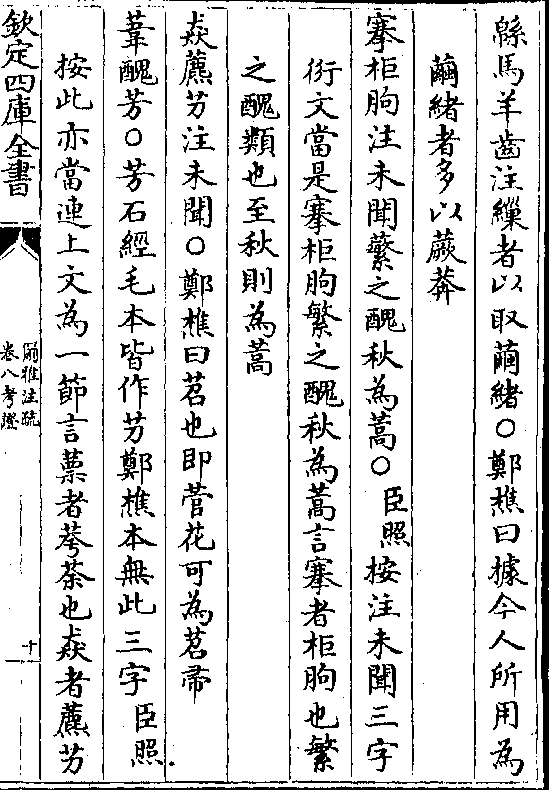 緜馬羊齒注繅者以取繭緒○鄭樵曰據今人所用為
繭緒者多以蕨莽
搴柜朐注未聞蘩之醜秋為蒿○臣照按注未聞三字
衍文當是搴柜朐繁之醜秋為蒿言搴者柜朐也繁
之醜類也至秋則為蒿
猋藨芀注未聞○鄭樵曰苕也即菅花可為苕帚
葦醜芳○芳石經毛本皆作芀鄭樵本無此三字臣照
按此亦當連上文為一節言蔈者荂荼也猋者藨芀
欽定四庫全書
爾雅注疏
卷八考證
十